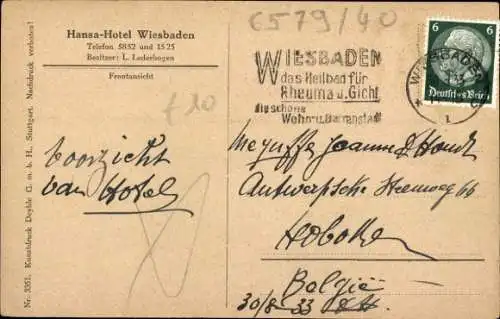 C579/40
Hansa-Hotel Wiesbaden
Telefon 5852 und 1525
Besitzer: L. Lederbogen
Frontansicht
WIESBADEN
das Heilbad für
Rheuma u. Gicht
die schöne
Wohn- u. Gartenstadt
WIESBADEN
1
6 6
Deutsches Reich
£20
Voorzicht
van Hotel
Mejuffr Joanna D'Hondt
Antwerpsche Steenweg 66
Hoboken
België
30/8-33
Nr. 3351. Kunstdruck Deyhle G. m. b. H., Stuttgart. Nachdruck verboten!